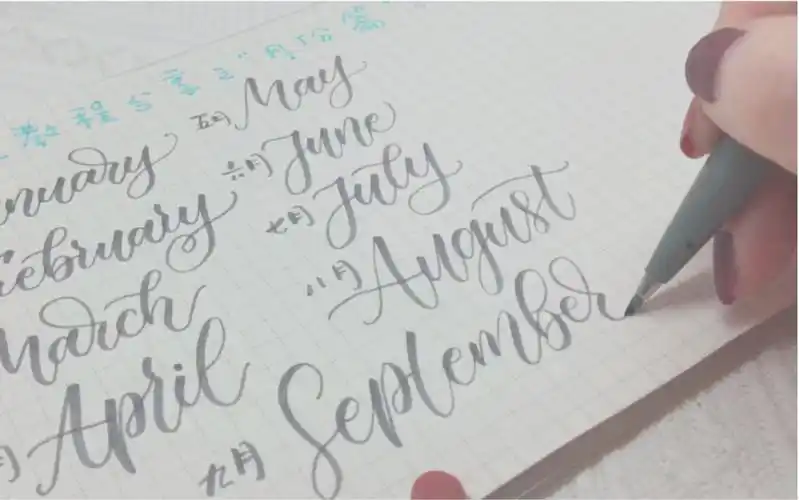 教程分享之"月份篇
nuary
February
March
月 April
五月 May
六月 June
七月 July
八月 August
九月 September